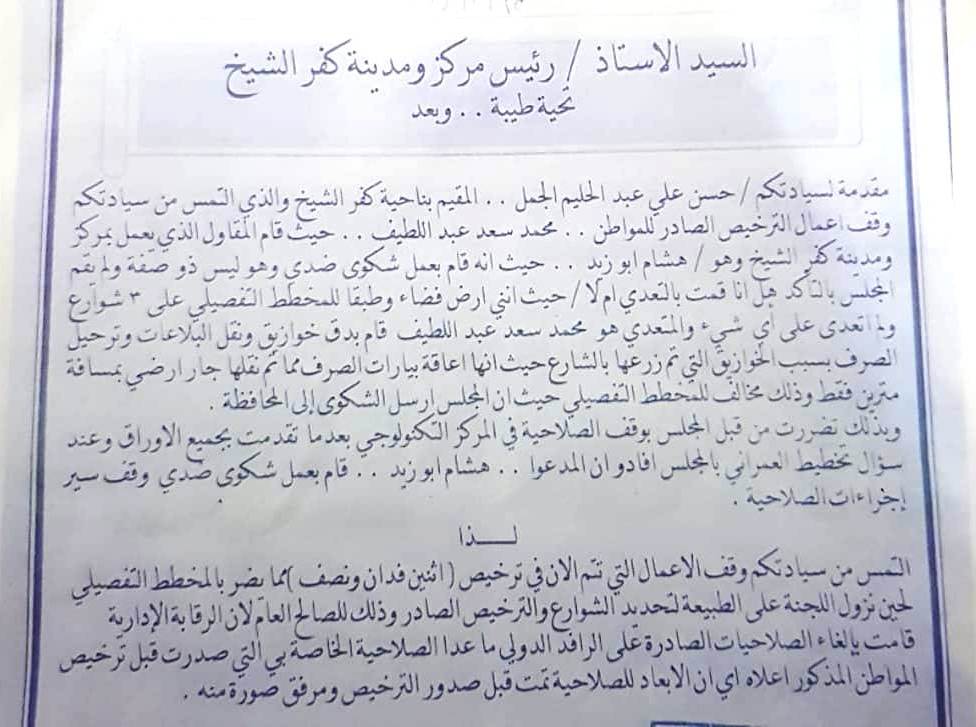 السيد الاستاذ / رئيس مركز ومدينة كفر الشيخ
تحية طيبة . . وبعد
مقدمة لسيادتكم / حسن علي عبد الحليم الجمل . . المقيم بناحية كفر الشيخ والذي التمس من سيادتكم
وقف اعمال الترخيص الصادر للمواطن . . محمد سعد عبد اللطيف . . حيث قام المقاول الذي يعمل بمركز
ومدينة كفر الشيخ وهو / هشام ابو زيد . . حيث انه قام بعمل شكوى ضدي وهو ليس ذو صفة ولم يقم
المجلس بالتأكد هل انا قمت بالتعدي ام لا / حيث انني ارض فضاء وطبقا للمخطط التفصيلي على ٣ شوارع
ولم اتعدى على أي شيء والمتعدي هو محمد سعد عبد اللطيف قام بدق خوازيق ونقل البلاعات وترحيل
الصرف بسبب الخوازيق التي تم زرعها بالشارع حيث انها اعاقة بيارات الصرف مما تم نقلها جار ارضي بمسافة
مترين فقط وذلك مخالف للمخطط التفصيلي حيث ان المجلس ارسل الشكوى إلى المحافظة .
وبذلك تضررت من قبل المجلس بوقف الصلاحية في المركز التكنولوجي بعدما تقدمت بجميع الاوراق وعند
سؤال تخطيط العمراني بالمجلس افادو ان المدعوا . . هشام ابو زيد . . قام بعمل شكوى ضدي وقف سير
إجراءات الصلاحية .
لــــذا
التمس من سيادتكم وقف الاعمال التي تتم الان في ترخيص ( اثنين فدان ونصف ) مما يضر بالمخطط التفصيلي
لحين نزول اللجنة على الطبيعة لتحديد الشوارع والترخيص الصادر وذلك للصالح العام لان الرقابة الإدارية
قامت بإلغاء الصلاحيات الصادرة على الرافد الدولي ما عدا الصلاحية الخاصة بي التي صدرت قبل ترخيص
المواطن المذكور اعلاه اي ان الابعاد للصلاحية تمت قبل صدور الترخيص ومرفق صورة منه .